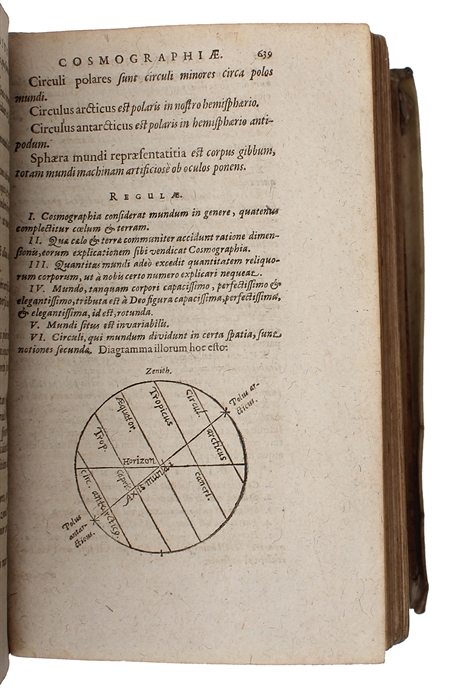 COSMOGRAPHIÆ. 639
Circuli polares sunt circuli minores circa polos
mundi.
Circulus arcticus est polaris in nostro hemisphærio.
Circulus antarcticus est polaris in hemisphærio anti-
podum.
Sphæra mundi repræsentatitia est corpus gibbum,
totam mundi machinam artificiosè ob oculos ponens.
REGULÆ.
I. Cosmographia considerat mundum in genere, quatenus
complectitur cœlum & terram.
II. Quæ cælo & terræ communiter accidunt ratione dimen-
sionis, eorum explicationem sibi vendicat Cosmographia.
III. Quantitas mundi adeò excedit quantitatem reliquo-
rum corporum, ut à nobis certo numero explicari nequeat.
IV. Mundo, tanquam corpori capacissimo, perfectissimo &
elegantissimo, tributa est à Deo figura capacissima, perfectissima,
& elegantissima, id est, rotunda.
V. Mundi situs est invariabilis.
VI. Circuli, qui mundum dividunt in certa spatia, sunt
notiones secundæ. Diagramma illorum hoc esto:
Zenith.
Polus ar-
cticus.
Circul.
arcticus
Tropicus
cancri.
Æquator.
Trop.
capric
Horizon
Axis mundi
Cir. antarcticꝰ.
Polus
antar-
cticus.